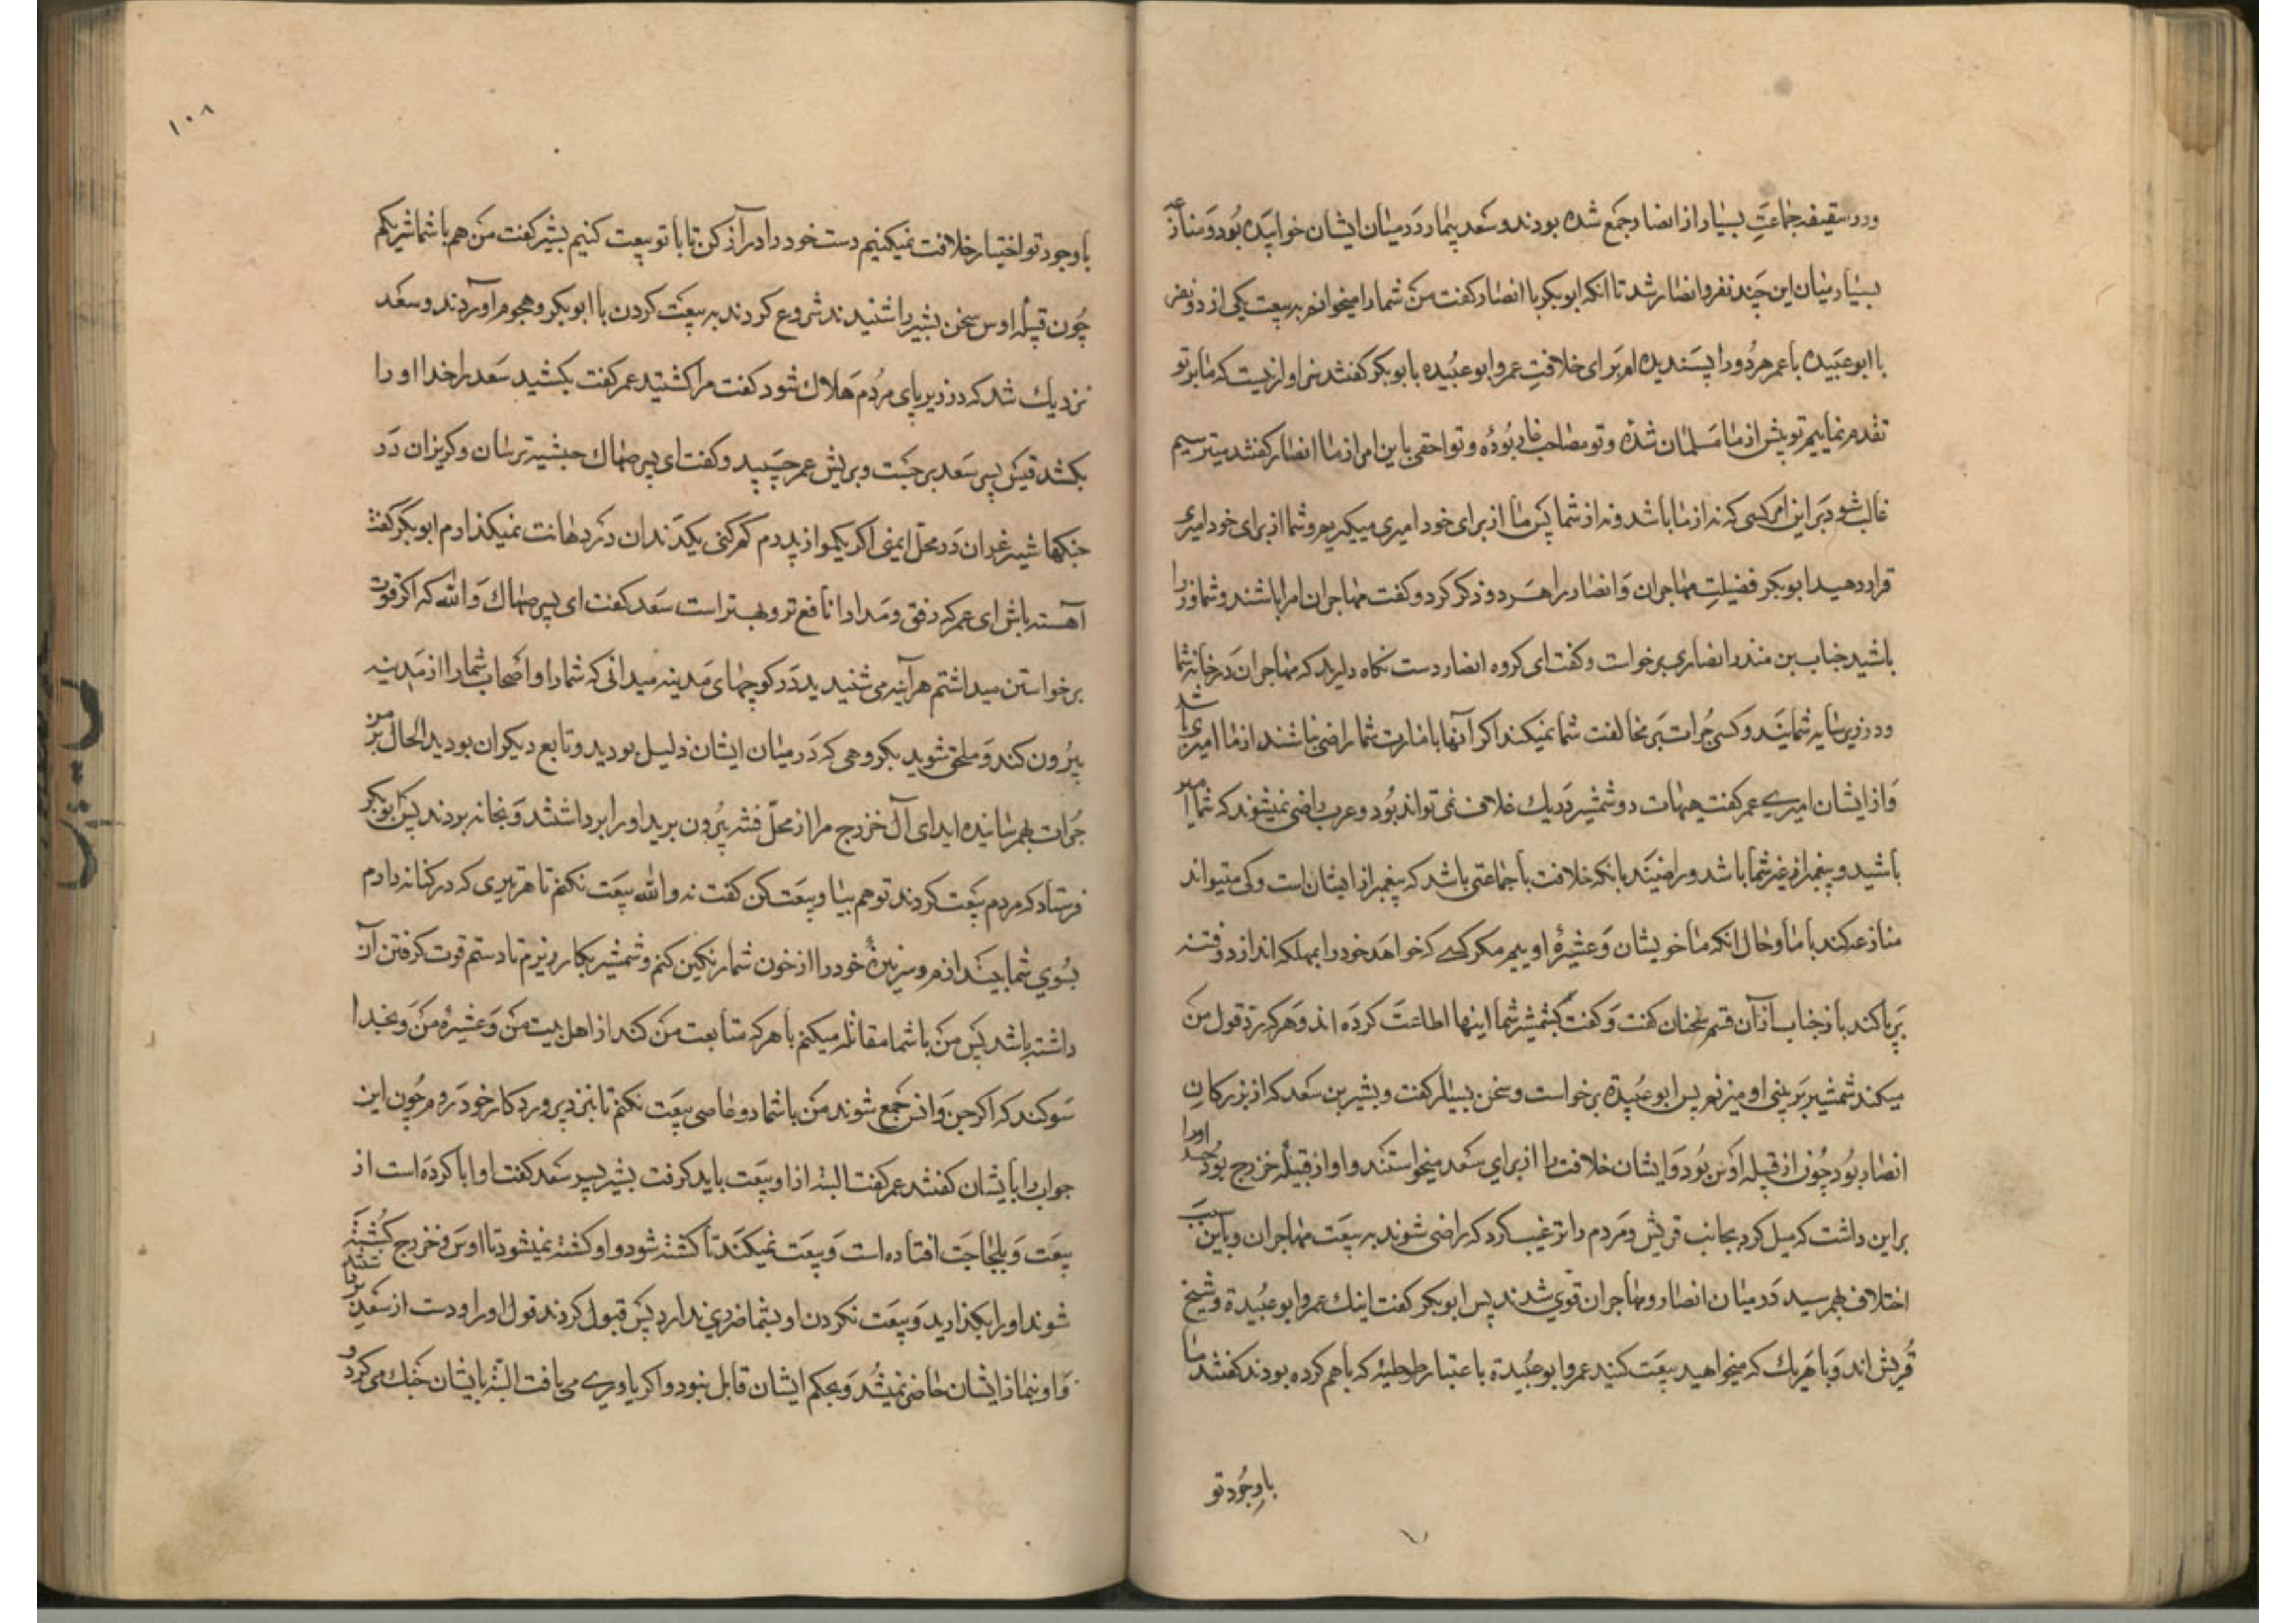 ودر سقیفه جماعتِ بسیار از انصار جمع شده بودند و سعد بیمار دَر میان ایشان خوابیده بُود وَ منازعه
بسیار میان این چند نفر و انصار شد تا انکه ابوبکر با انصار کفت من شما را میخوانم به بیعت یکی از دو نفر
با ابوعبیده یا عمر هر دُو را پسندیده ام برای خلافتِ عمر و ابوعبیده با بوبکر کفتند سزاوار نیست که ما بر تو
تقدم نماییم تو پیش از ما مسلمان شدهٔ و تو مصاحب غار بُودهٔ و تو احقی باین امر از ما انصار کفتند میترسیم
غالب شود بَر این امر کسی که نه از ما باشد و نه از شما پس ما از برای خود امیری میکیریم و شما از برای خود امیری
قرار دهید ابوبکر فضیلتِ مهاجران وَ انصار را هَر دو ذکر کرد و کفت مهاجران امرا باشند و شما وزرا
باشید حباب بن منذر انصاری برخواست و کفت ای کروه انصار دست نکاه دارید که مهاجران دَر خانه شما
ودر زیر سایه شمایند و کسی جُرات بَر مخالفت شما نمیکند اکر آنها بامارت شما راضی نباشند از ما امیری باشد
وَ از ایشان امیری عمر کفت هیهات دو شمشیر دَر یك غلاف نمی تواند بُود و عرب راضی نمیشوند که شما امیر
باشید و پیغمبر از غیر شما باشد و راضیند بانکه خلافت با جماعتی باشد که پیغمبر از ایشان است و کی میتواند
منازعه کند با ما و حال انکه ما خویشان وَ عشیرهٔ اوییم مکر کسی که خواهد خود را بمهلکه اندازد و فتنه
بَرپا کند باز حباب از آن قسم سخنان کفت وَ کفت بشمشیر شما اینها اطاعت کرده اند وَ هر که رد قول من
میکند شمشیر بَر بینی او میزنم پس ابوعبیدة برخواست و سخن بسیار کفت و بشیر بن سعد که از بزرکان
انصار بُود چُون از قبیله اوس بُود وَ ایشان خلافت را از برای سعد میخواستند و او از قبیلهٔ خزرج بود حسد او را
بر این داشت که میل کرد بجانب قریش و مَردم را ترغیب کرد که راضی شوند به بیعَت مهاجران و باین سبب
اختلاف بهم رسید دَر میان انصار و مهاجران قوی شدند پس ابوبکر کفت اینك عمر و ابوعبُیدة و شیخ
قُریش اند وَ با هَر یك که میخواهید بیعَت کنید عمر و ابوعبُیدة باعتبار طوطیهٔ که باهم کرده بودند کفتند ما
با وجُود تو
۱۰۸
با وجود تو اختیار خلافت نمیکنیم دست خود را دراز کن تا با تو بیعت کنیم بشیر کفت من هم با شما شریکم
چُون قبیلهٔ اوس سخن بشیر را شنیدند شروع کردند به بیعَت کردن با ابوبکر و هجوم اوردند و سعد
نزدیك شد که در زیر پای مردُم هَلاك شود کفت مرا کشتید عمر کفت بکشید سَعد را خدا او را
بکشد قیس پسر سَعد برجست و بریش عمر چسپید و کفت ای پسر صهاك حبشیه ترسان و کریزان دَر
جنکها شیر غران دَر محلّ ایمنی اکر یکمو از پدرم کم کنی یکدندان دَر دهانت نمیکذارم ابوبکر کفت
آهسته باش ای عمر که رفق و مدارا نافع تر و بهتر است سَعد کفت ای پسر صهاك وَالله که اکر قوت
برخواستن میداشتم هرآینه می شنیدید دَر کوچهای مَدینه میدانی که شما را و اصحاب شما را از مَدینه
بیرُون کند وَ ملحق شوید بکروهی که دَر میان ایشان ذلیل بودید و تابع دیکران بودید الحال بر من
جُرات بهم رسانیده اید ای آل خزرج مرا از محلّ فتنه بیرُون برید او را برداشتند وَ بخانه بردند پس ابوبکر
فرستاد که مردم بیعَت کردند تو هم بیا و بیعَت کن کفت نه والله بیعَت نکنم تا هر تیری که در کنانه دارم
بسُوی شما بیندازم و سر نیزهٔ خود را از خون شما رنکین کنم و شمشیر بکار برم تا دستم قوت کرفتن آن
داشته باشد پس من با شما مقاتله میکنم با هر که متابعت من کند از اهل بیت من وَ عشیرهٔ من وَ بخدا
سوکند که اکر جن وَ انس جمع شوند من با شما دو عاصی بیعَت نکنم تا بنزد پروردکار خود رَوم چُون این
جواب را بایشان کفتند عمر کفت البته از او بیعَت باید کرفت بشیر پسر سَعد کفت او ابا کرده است از
بیعَت وَ بلجاجت افتاده است وَ بیعَت نمیکند تا کشته شود و او کشته نمیشود تا اوس و خزرج کُشته
شوند او را بکذارید وَ بیعَت نکردن او بشما ضرری ندارد پس قبول کردند قول او را و دست از سَعد برداشتند
وَ او بنماز ایشان حاضر نمیشُد وَ بحکم ایشان قایل نبود و اکر یاوری می یافت البته با ایشان جنك می کرد و